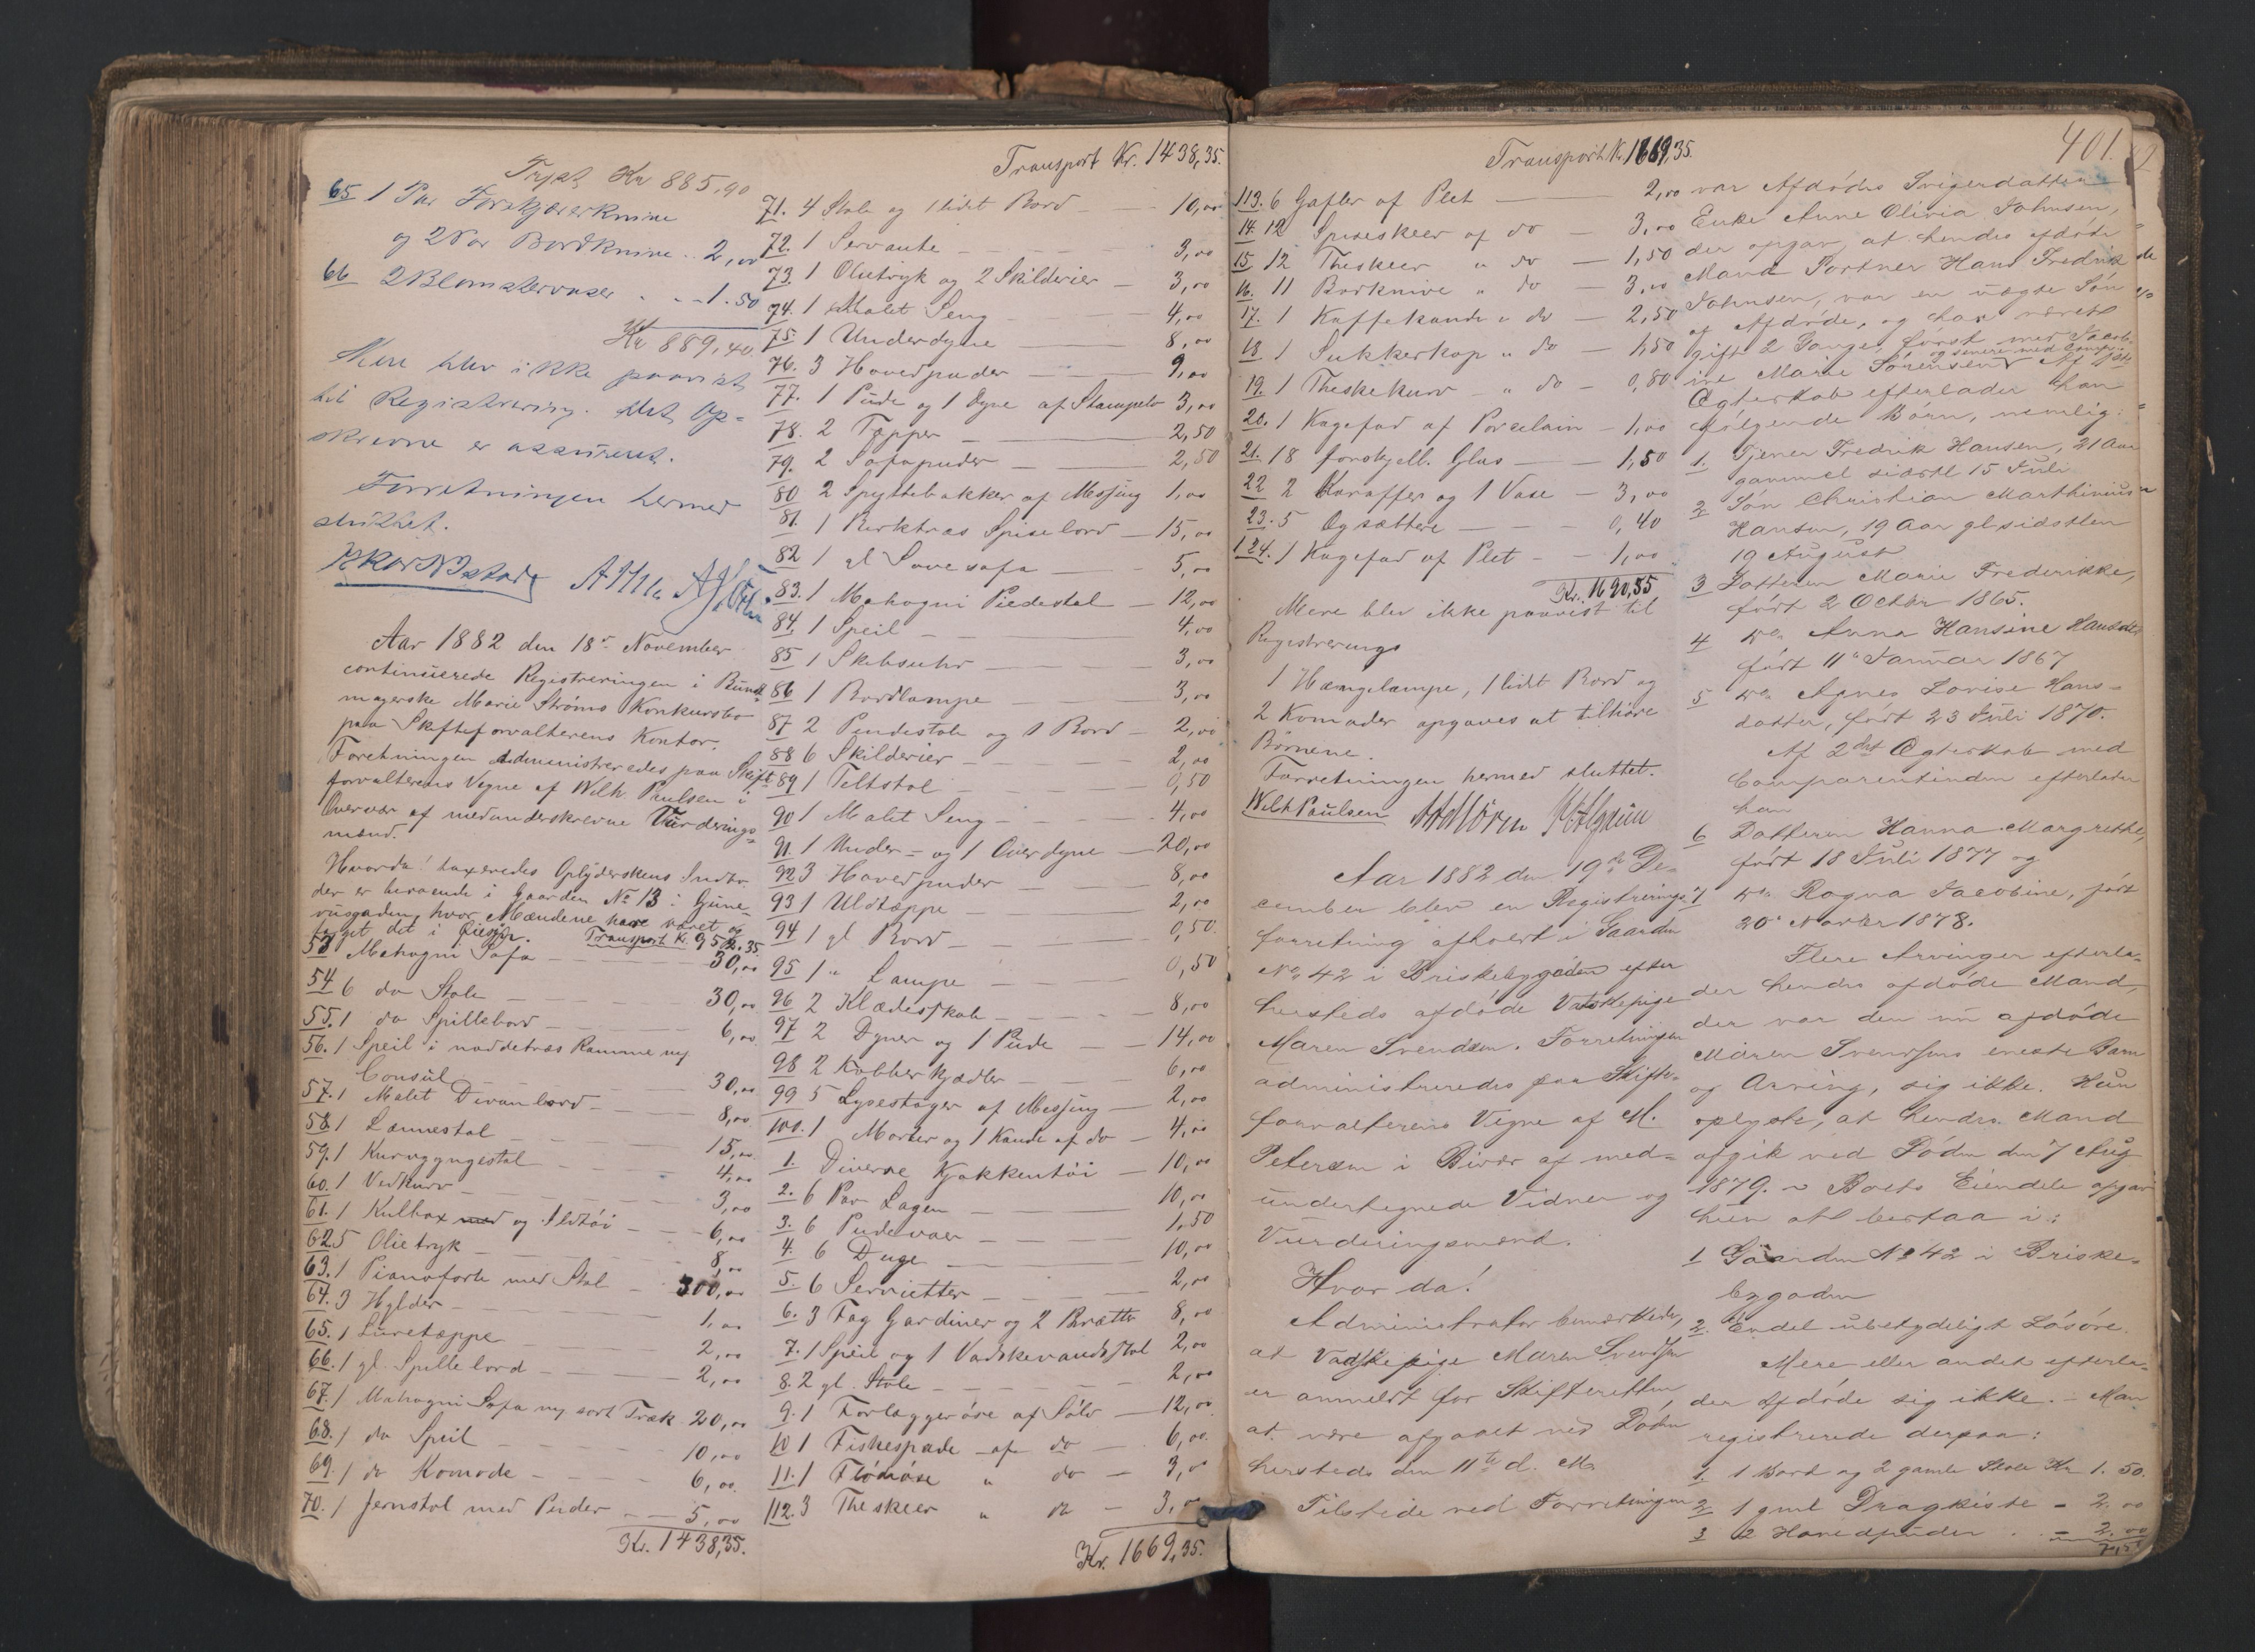 Trpt Kr 885,90
65 1 Par Forskjærerknive
og 2 Par Bordknive .. 2,00
66 2 Blomstervaser . . - 1.50
Kr 889,40.
Mere blev ikke paavist
til Registrering. Det Op-
skrevne er assureret.
Forretningen hermed
sluttet.
Aar 1882 den 18de November
continuerede Registreringen i Bundt-
magerske Marie Strøms Konkursbo
paa Skifteforvalterens Kontor.
Forretningen administreredes paa Skifte-
forvalterens Vegne af Wilh. Paulsen i
Overvær af medunderskrevne Vurderings-
mænd.
Hvorda! taxeredes Oplyderskens Indbo
der er beroende i Gaarden No 13 i Grüne-
vusgaden, hvor Mændene have været og
taget det i Øiesyn. Transport Kr. 952.35
53 1 Mahogni Sofa - - - 30,00
54 6 do Stole - - - 30,00
55. 1 do Spillebord - - - 6,00
56. 1 Speil i nøddetræs Ramme og
Consul - - - 30,00
57. 1 Malet Divanbord - - - 8,00
58. 1 Lænestol - - - 15,00
59. 1 Kurvgyngestol - - - 4,00
60. 1 Vedkurv - - - 3,00
61. 1 Kulbox med og Ildtøi - - 6,00
62. 5 Olietryk - - - 8,00
63. 1 Pianoforte med Stol - 300,00
64. 3 Hylder - - - 1,00
65. 1 Turetæppe 2,00
66. 1 gl. Spillebord - - - 2,00
67. 1 Mahogni Sofa og sort Træk 20,00
68. 1 do Speil - - - 10,00
69. 1 do Komode - - - 6,00
70. 1 Jernstol med Puder - - 5,00
Kr. 1438,35.
Transport Kr. 1438,35.
71. 4 Stole og 1 lidet Bord - - 10,00
72. 1 Servante - - - 3,00
73. 1 Olietryk og 2 Skilderier - 3,00
74. 1 Malet Seng - - - 4,00
75. 1 Underdyne - - - 8,00
76. 3 Hovedpuder - - - 9,00
77. 1 Pude og 1 Dyne af Stampeld 3,00
78. 2 Tæpper - - - 2,50
79. 2 Sofapuder - - - 2,50
80 2 Spyttebakker af Messing 1,00
81. 1 Birketræs Spisebord - 15,00
82 1 gl Sovesofa - - - 5,00
83. 1 Mahogni Piedestal - 12,00
84. 1 Speil - - - 4,00
85 1 Skabsuhr - - - 3,00
86 1 Bordlampe - - - 3,00
87 2 Pindestole og 1 Bord - 2,00
88 6 Skilderier - - - 2,00
89 1 Teltstol - - - 0,50
90 1 Malet Seng - - - 4,00
91. 1 Under- og 1 Overdyne - 20,00
92 3 Hovedpuder - - - 8,00
93 1 Uldtæppe 2,00
94 1 gl Bord - - - 0,50
95 1 " Lampe - - - 0,50
96 2 Klædesskabe - - - 8,00
97 2 Dyner og 1 Pude - - 14,00
98 2 Kobberkjedler - - - 6,00
99 5 Lysestager af Messing - 2,00
100. 1 Morter og 1 Kande af do - 4,00
1. Diverse Kjøkkentøi - 10,00
2. 6 Par Lagen - - - 10,00
3. 6 Pudevaar - - - 1,50
4. 6 Duge - - - 10,00
5. 6 Servietter - - - 2,00
6. 3 Fag Gardiner og 2 Brætter 8,00
7. 1 Speil og 1 Vadskevandsstol 2,00
8. 2 gl. Stole - - - 2,00
9. 1 Forlæggerøse af Sølv - 12,00
10 1 Fiskespade - af do - 6,00
11. 1 Flødeøse " do - 3,00
112. 3 Theskeer " do - 3,00
Kr. 1669,35.
Transport Kr. 1669,35.
401.
113. 6 Gafler af Plet - 2,00
14. 12 Spiseskeer af do - 3,00
15 12 Theskeer " do - 1,50
16. 11 Bordknive " do - 3,00
17. 1 Kaffekande " do - 2,50
18 1 Sukkerkop " do - 1,50
19. 1 Theskekurv " do - 0,80
20. 1 Kagefad af Porcelain - 1,00
21. 18 forskjell. Glas - 1,50
22 2 Karaffer og 1 Vase - 3,00
23. 5 Ogsættere - - 0,40
124. 1 Kagefad af Plet - - 1,00
Kr. 1690,55
Mere blev ikke paavist til
Registrerings
1 Hængelampe, 1 lidet Bord og
2 Komoder opgaves at tilhøre
Børnene.
Forretningen hermed sluttet.
Wilh Paulsen
Aar 1882 den 19de De-
cember blev en Registrerings-
forretning afholdt i Gaarden
No 42 i Briskebygaden efter
hersteds afdøde Vaskepige
Maren Svendsen. Forretningen
administreredes paa Skifte-
forvalterens Vegne af M.
Petersen i Bivær af med-
undertegnede Vidner og
Vurderingsmænd.
Hvor da!
Administrator bemærkede,
at Vadskepige Maren Svendsen
er anmeldt for Skifteretten,
at være afgaaet ved Døden
hersteds den 11te d. M.
Tilstede ved Forretningen
var Afdødes Svigerdatter
Enke Anne Olivia Johnsen,
der opgav, at hendes afdøde
Mand Portner Hans Fredrik
Johnsen, var en uægte Søn
af Afdøde, og har været
gift 2 Gange, først med Jacob-
ine Marie Sørensen og senere med Comp. Af 1ste
Ægteskab efterlader han
følgende Børn, nemlig:
1. Tjener Fredrik Hansen, 21 Aar
gammel sidstl 15 Juli
2 Søn Christian Marthinius
Hansen, 19 Aar gl sidstlen
19 August
3 Datteren Marie Frederikke,
født 2 Octbr 1865.
4 do Anna Hansine Hansdtr
født 11te Januar 1867
5 do Agnes Lovise Hans-
datter, født 23 Juli 1870.
Af 2det Ægteskab med
Comparentinden efterlader
han
6 Datteren Hanna Margrethe,
født 18 Juli 1877 og
7 do Ragna Jacobine, født
20de Novbr 1878.
Flere Arvinger efterla-
der hendes afdøde Mand,
der var den nu afdøde
Maren Svendsens eneste Barn
og Arving, sig ikke. Hun
oplyste, at hendes Mand
afgik ved Døden den 7 Aug
1879. - Boets Eiendele opgav
hun at bestaa i:
1 Gaarden No 42 i Briske-
bygaden
2. Endel ubetydeligt Løsøre.
Mere eller andet efterla-
der Afdøde sig ikke. - Man
registrerede derpaa:
1. 1 Bord og 2 gamle Stole Kr 1. 50.
2 1 gml Dragkiste - 2.00
3 2 Hovedpuder . . - 2.00